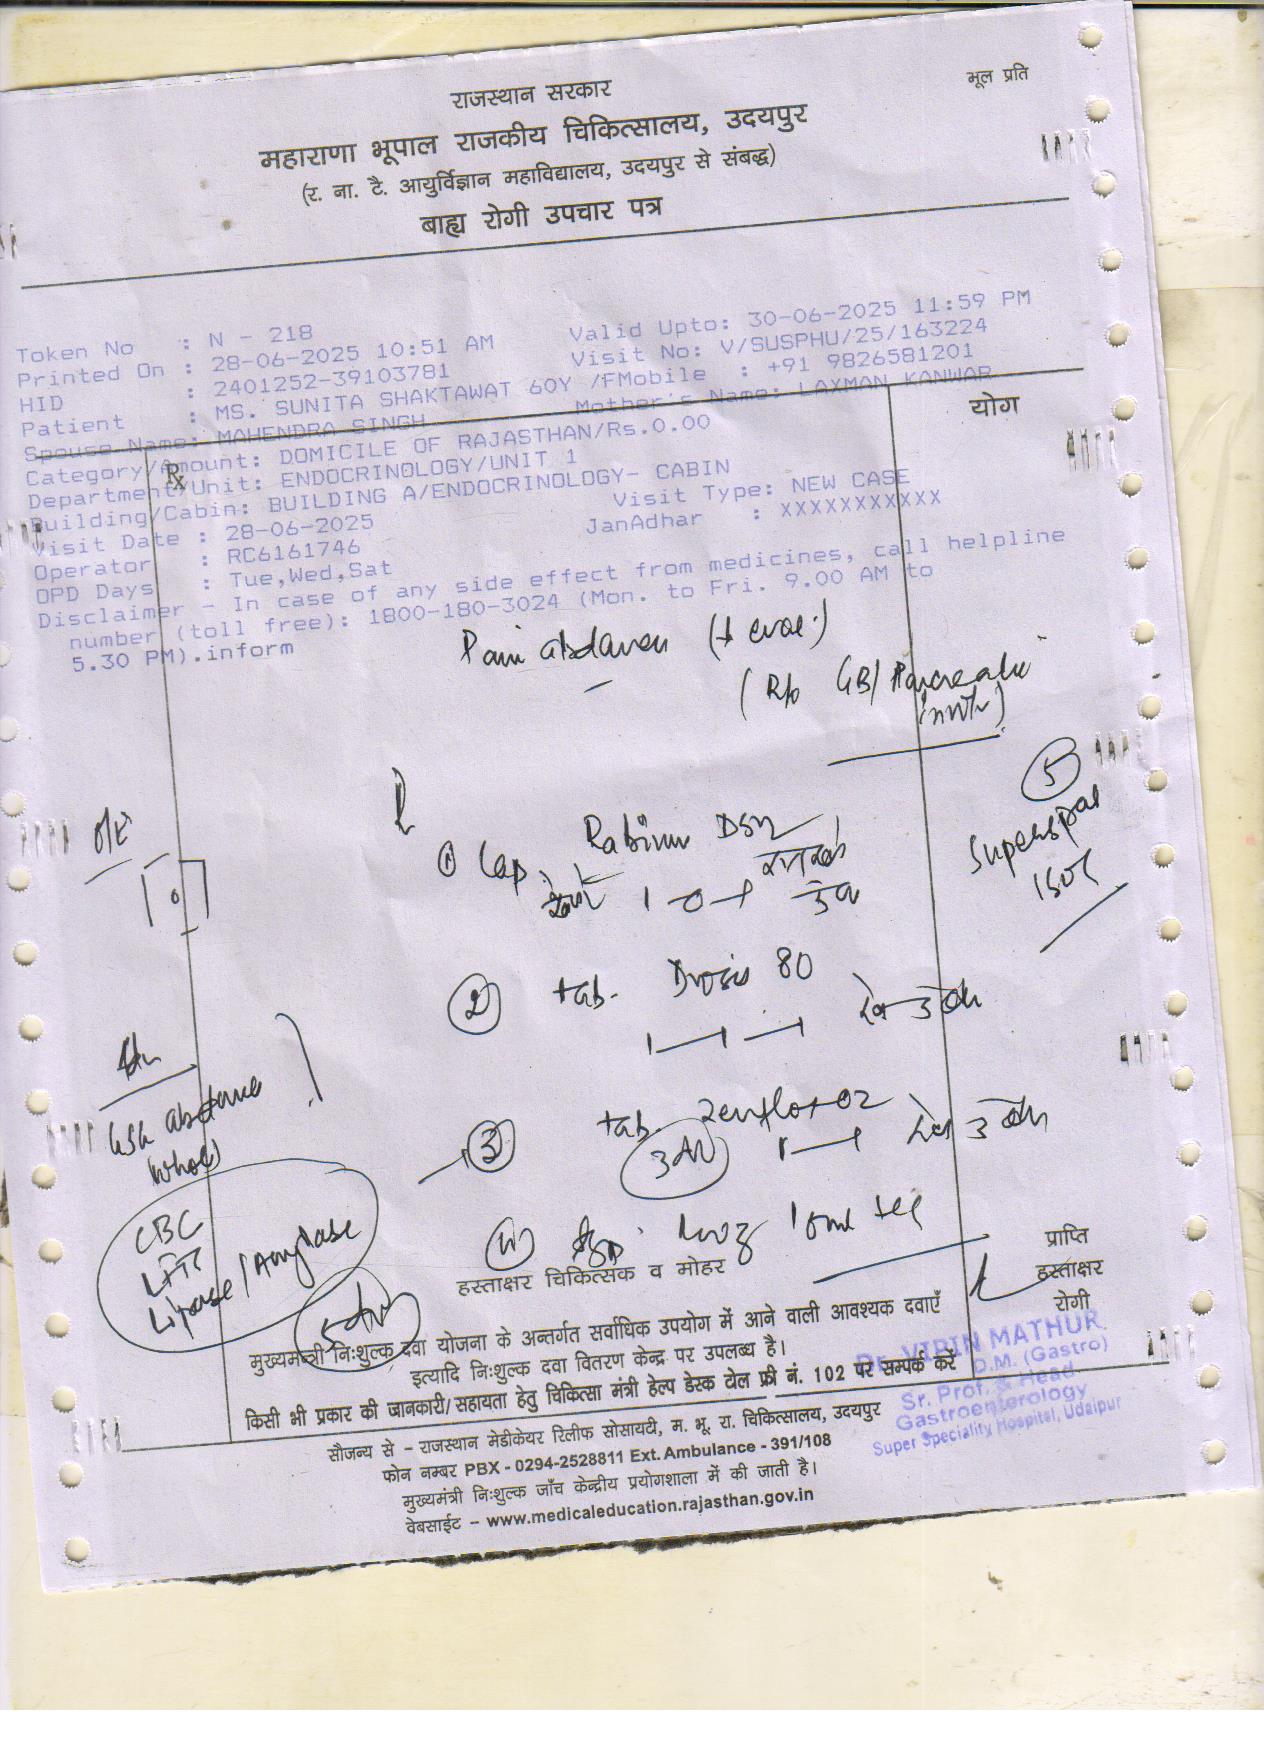 राजस्थान सरकार
मूल प्रति
महाराणा भूपाल राजकीय चिकित्सालय, उदयपुर
(र. ना. टै. आयुर्विज्ञान महाविद्यालय, उदयपुर से संबद्ध)
बाह्य रोगी उपचार पत्र
Token No : N - 218
Printed On : 28-06-2025 10:51 AM Valid Upto: 30-06-2025 11:59 PM
HID : 2401252-39103781 Visit No: V/SUSPHU/25/163224
Patient : MS. SUNITA SHAKTAWAT 60Y /F Mobile : +91 9826581201
Spouse Name: MAHENDRA SINGH Mother's Name: LAXMAN KANWAR
योग
Rx
Category/Amount: DOMICILE OF RAJASTHAN/Rs.0.00
Department/Unit: ENDOCRINOLOGY/UNIT 1
Building/Cabin: BUILDING A/ENDOCRINOLOGY- CABIN
Visit Date : 28-06-2025 Visit Type: NEW CASE
Operator : RC6161746 JanAdhar : XXXXXXXXXXX
OPD Days : Tue,Wed,Sat
Disclaimer - In case of any side effect from medicines, call helpline
number (toll free): 1800-180-3024 (Mon. to Fri. 9.00 AM to
5.30 PM).inform
Pain abdomen
(R/o GB/Pancreatic
O/E
① Cap. DSR
1-0-1
② tab. 80
③ tab. OZ
10ml
⑤
abdomen
(whole)
CBC
LFT
Lipase/Amylase
हस्ताक्षर चिकित्सक व मोहर
प्राप्ति
हस्ताक्षर
रोगी
मुख्यमन्त्री निःशुल्क दवा योजना के अन्तर्गत सर्वाधिक उपयोग में आने वाली आवश्यक दवाएँ
इत्यादि निःशुल्क दवा वितरण केन्द्र पर उपलब्ध है।
किसी भी प्रकार की जानकारी/सहायता हेतु चिकित्सा मंत्री हेल्प डेस्क टोल फ्री नं. 102 पर सम्पर्क करें
Dr. VIPIN MATHUR
D.M. (Gastro)
Sr. Prof. & Head
Gastroenterology
Super Speciality Hospital, Udaipur
सौजन्य से - राजस्थान मेडीकेयर रिलीफ सोसायटी, म. भू. रा. चिकित्सालय, उदयपुर
फोन नम्बर PBX - 0294-2528811 Ext. Ambulance - 391/108
मुख्यमंत्री निःशुल्क जाँच केन्द्रीय प्रयोगशाला में की जाती है।
वेबसाईट - www.medicaleducation.rajasthan.gov.in